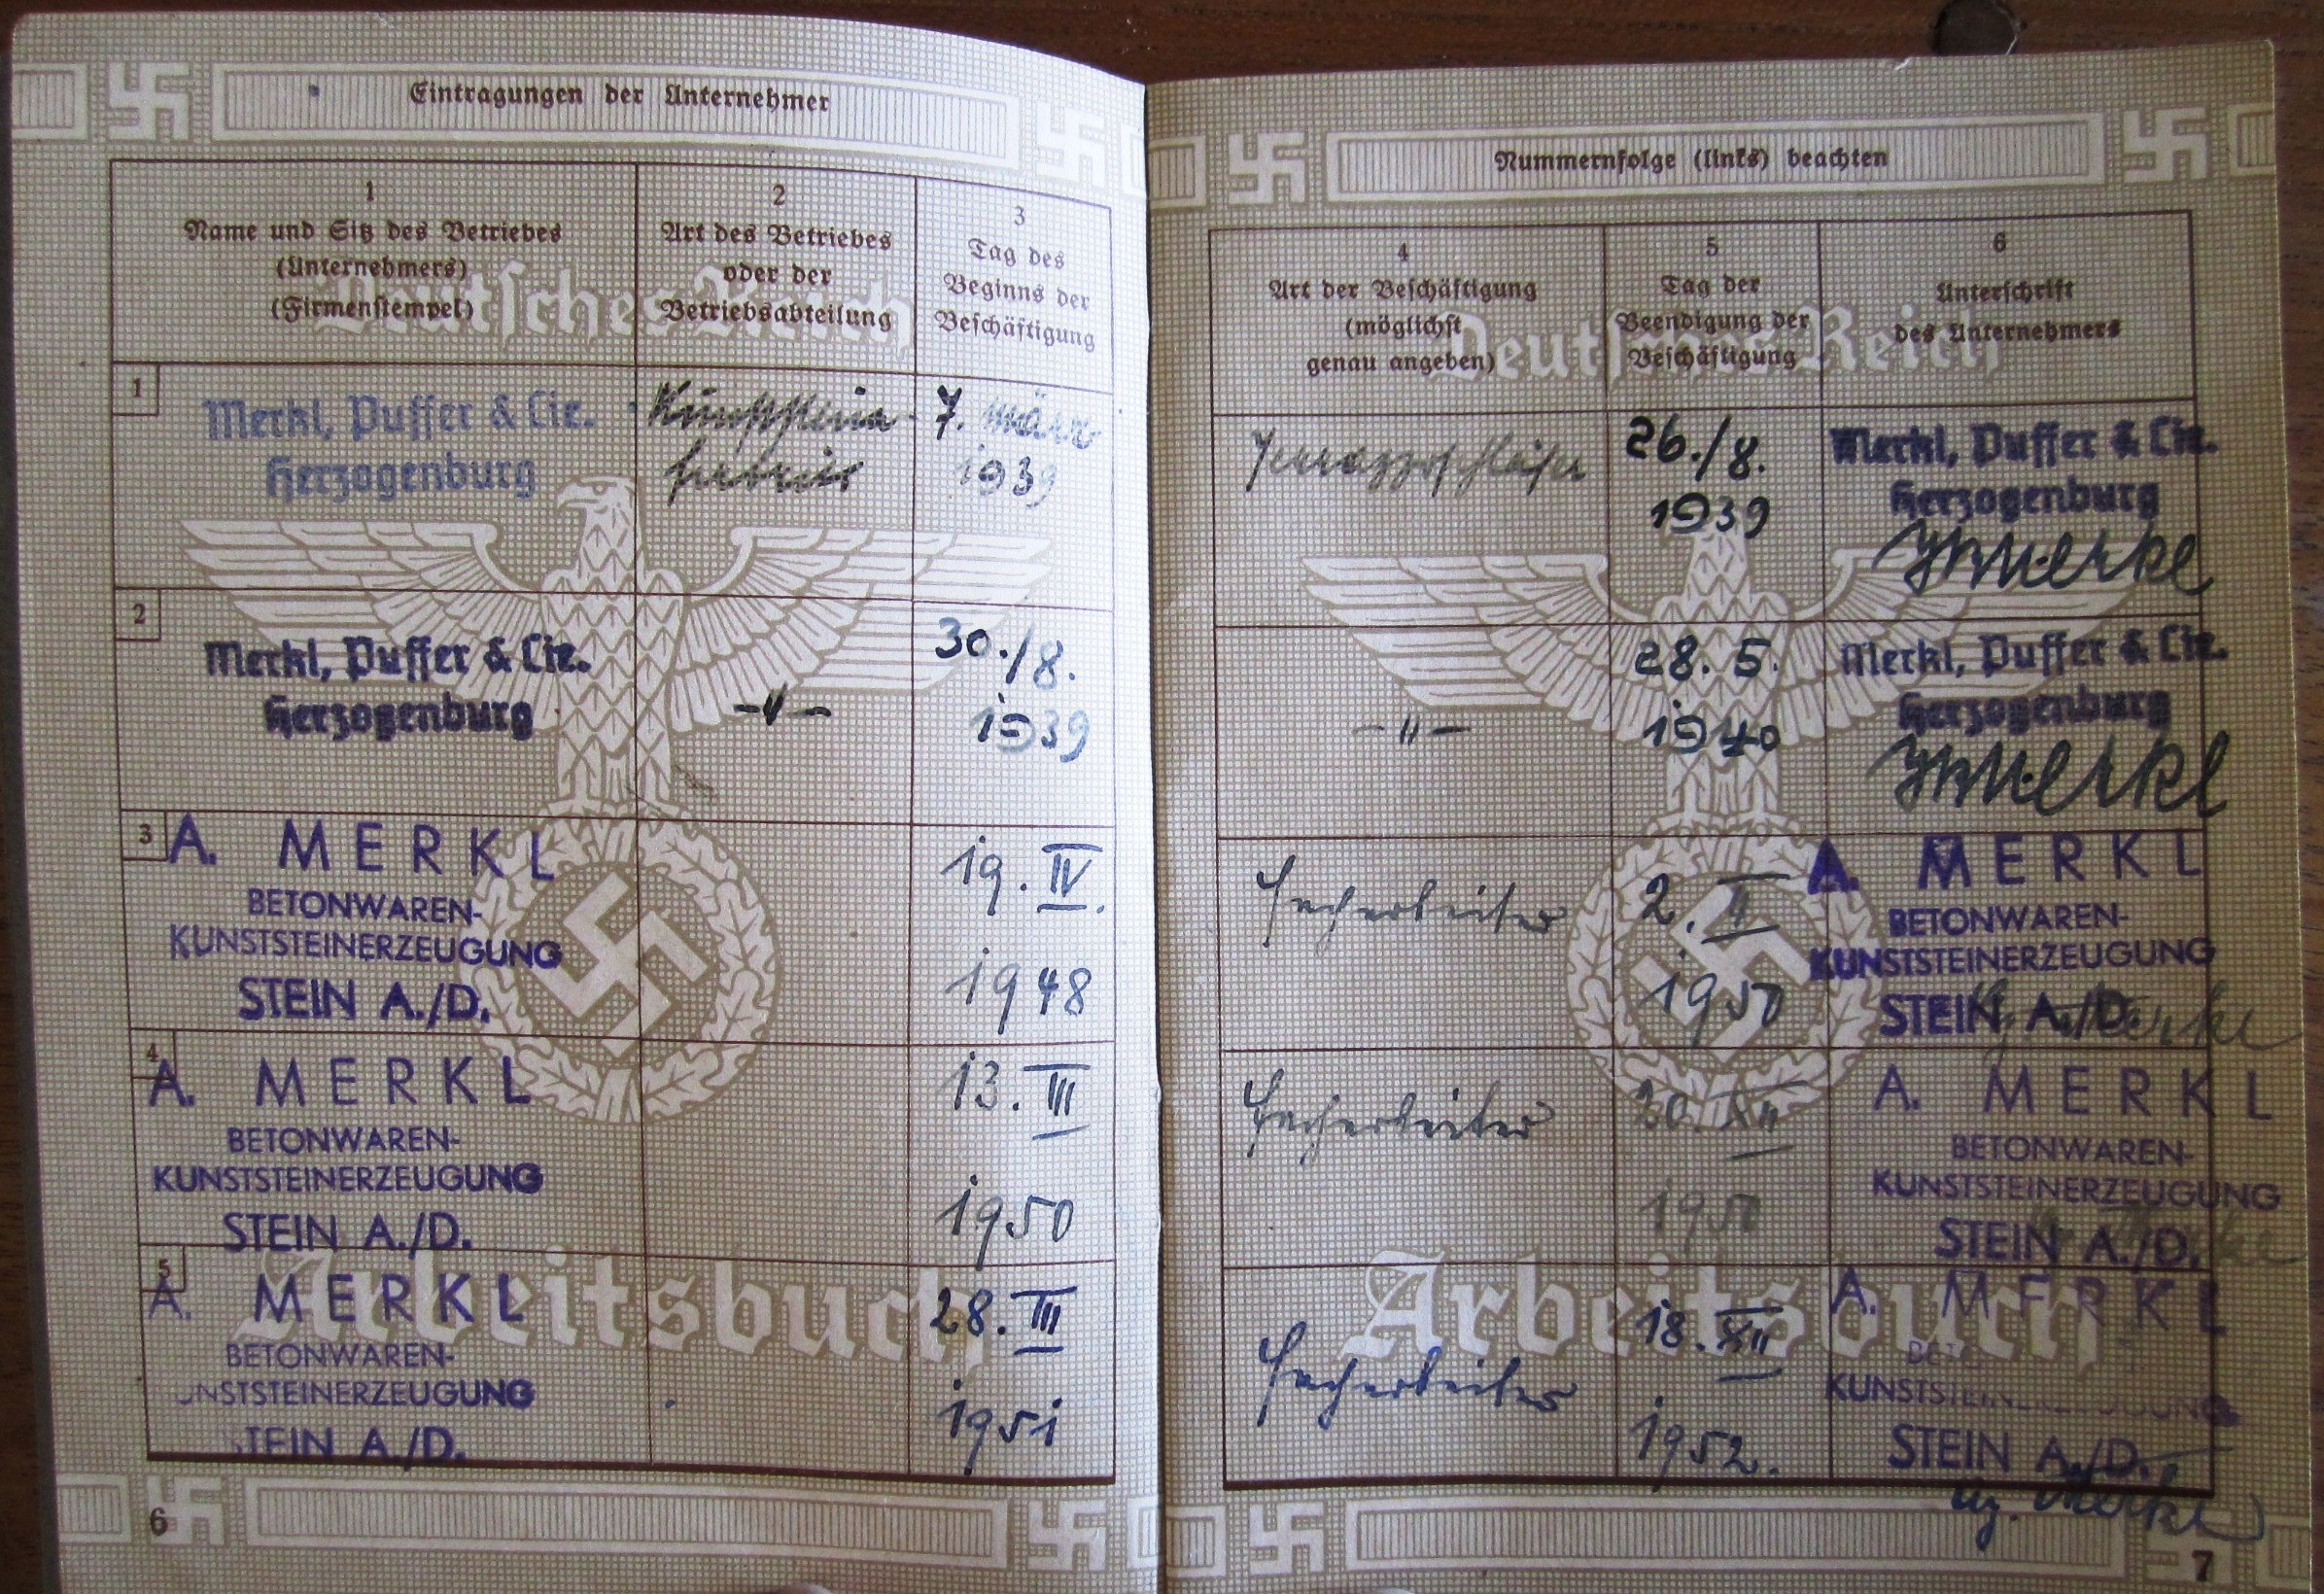 Eintragungen der Unternehmer
1
Name und Sitz des Betriebes
(Unternehmers)
(Firmenstempel)
2
Art des Betriebes
oder der
Betriebsabteilung
3
Tag des
Beginns der
Beschäftigung
Deutsches Reich
1
Merkl, Puffer & Cie.
Herzogenburg
Kunststein-
betrieb
7. März
1939
2
Merkl, Puffer & Cie.
Herzogenburg
-"-
30./8.
1939
3
A. MERKL
BETONWAREN-
KUNSTSTEINERZEUGUNG
STEIN A./D.
19. IV.
1948
4
A. MERKL
BETONWAREN-
KUNSTSTEINERZEUGUNG
STEIN A./D.
13. III
1950
5
A. MERKL
BETONWAREN-
UNSTSTEINERZEUGUNG
STEIN A./D.
28. III
1951
Arbeitsbuch
6
Nummernfolge (links) beachten
4
Art der Beschäftigung
(möglichst
genau angeben)
5
Tag der
Beendigung der
Beschäftigung
6
Unterschrift
des Unternehmers
Deutsches Reich
Terrazzoschleifer
26./8.
1939
Merkl, Puffer & Cie.
Herzogenburg
Merkl
-"-
28. 5.
1940
Merkl, Puffer & Cie.
Herzogenburg
Merkl
Facharbeiter
2. II
1950
A. MERKL
BETONWAREN-
KUNSTSTEINERZEUGUNG
STEIN A./D.
Merkl
Facharbeiter
20. XII
1950
A. MERKL
BETONWAREN-
KUNSTSTEINERZEUGUNG
STEIN A./D.
Facharbeiter
18. XII
1952.
A. MERKL
BET
KUNSTSTEINERZEUGUNG
STEIN A./D.
Merkl
Arbeitsbuch
7